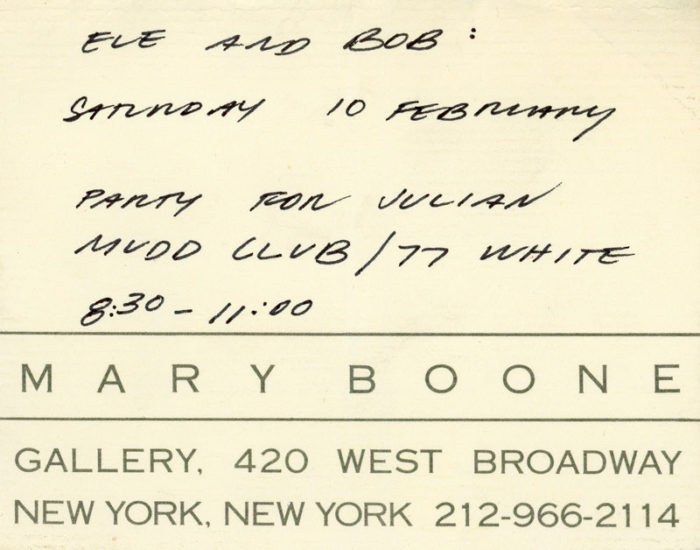 EVE AND BOB:
SATURDAY 10 FEBRUARY
PARTY FOR JULIAN
MUDD CLUB/77 WHITE
8:30 - 11:00
MARY BOONE
GALLERY, 420 WEST BROADWAY
NEW YORK, NEW YORK 212-966-2114